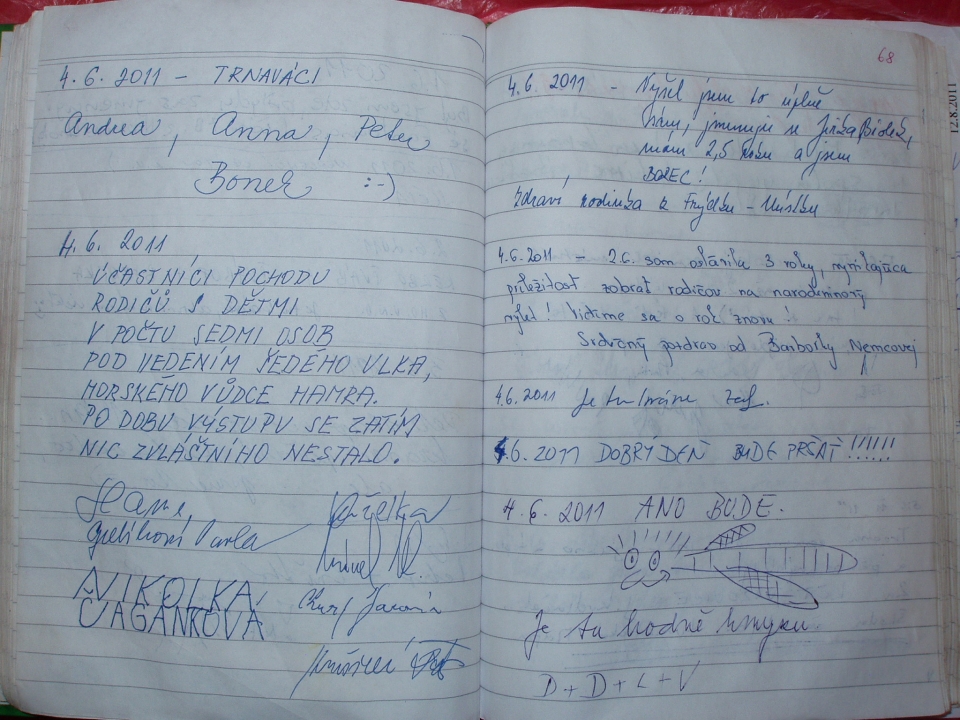 4. 6. 2011 – TRNAVÁCI
Andrea, Anna, Peter
Boner :-)
4. 6. 2011
ÚČASTNÍCI POCHODU
RODIČŮ S DĚTMI
V POČTU SEDMI OSOB
POD VEDENÍM ŠEDÉHO VLKA,
HORSKÉHO VŮDCE HAMRA.
PO DOBU VÝSTUPU SE ZATÍM
NIC ZVLÁŠTNÍHO NESTALO.
NIKOLKA
ČAGÁNKOVÁ
68
4. 6. 2011 - Vyšel jsem to úplně
sám, jmenuju se Jirka
mám 2,5 roku a jsem
BOREC!
Zdraví rodinka z Frýdku - Místku
4.6.2011 – 2.6. som oslávila 3 roky, vynikajúca
príležitosť zobrať rodičov na narodeninový
výlet! Vidíme sa o rok znovu!
Srdečný pozdrav od Barborky Nemcovej
4.6. 2011 Je tu
4.6. 2011 DOBRÝ DEŇ BUDE PRŠAŤ!!!!!!
4. 6. 2011 ANO BUDE.
Je tu hodně hmyzu.
D + D + L + V
12.8.2011